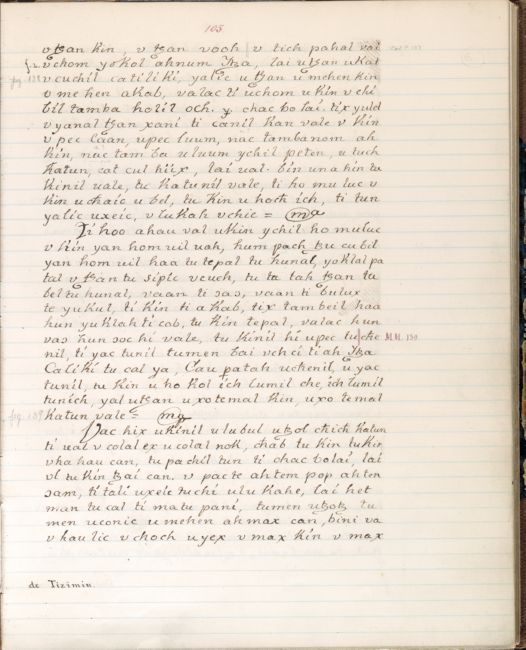 165
v ꜩan kin, v ꜩan vooh v tich pahal vai
vchom yokol ahnum Ytza, lai uꜩan u kat
fig. 138 v cuchil catiliki, yalic u ꜩan u mehen kin
v me hen akab, valac ti uchom u kin v chi
bil tamba holil och. y. chac bolai. tix yuldd
v yanal ꜩan xani ti canil kan vale v kin
v pec caan, upec luum, nac tambanom ah
kin, nac tam ba uluum ychil peten, u tuch
katun, cat cul hiix, lai ual. bin un a kin tu
kinil uale, tu katunil vale, ti ho mu luc v
kin u chaic u bel, tu kin u hoch ich, ti tun
yalic uxeic, v lukah vchic = ma
Ti hoo ahau val ukin ychil ho muluc
v kin yan hom uil uah, hum pach ꜩu cu bil
yan hom uil haa tu tepal tu hunal, yoklal pa
tal v ꜩan tu sipic vcuch, tu ta lah ꜩan tu
bel tu hunal, vaan ti sas, vaan ti bulux
te yukul, ti kin ti akab, tix tambeil haa
hun yuklah ti cab, tu kin tepal, valac hun
vas hun soc hi vale, tu kinil hi upec tuche M.M. 130.
nil, ti yac tunil tumen bai vchci ti ah Ytza
Caliki tu cal ya, Cau patah uckenil, u yac
tunil, tu kin u ho kol ich lumil che, ich lumil
tunich, yal uꜩan uxotemal kin, uxo temal
fig. 139 katun vale = ma
Vac hix ukinil u lubul uꜩol chich katun
ti ual v colal ex u colal nok, chab tu kin tukin
vka hau can, tu pachil tun ti chac bolai, lai
vl tu kin ꜩai can. v pacte ahtem pop ahten
sam, ti tali uxeic tuchi ulu kahe, lai het
man tu cal ti matu pani, tumen uꜩoꜩ tu
men uconic u mehen ah max can, bini va
v haulic v choch uyex v max kin v max
de Tizimin.